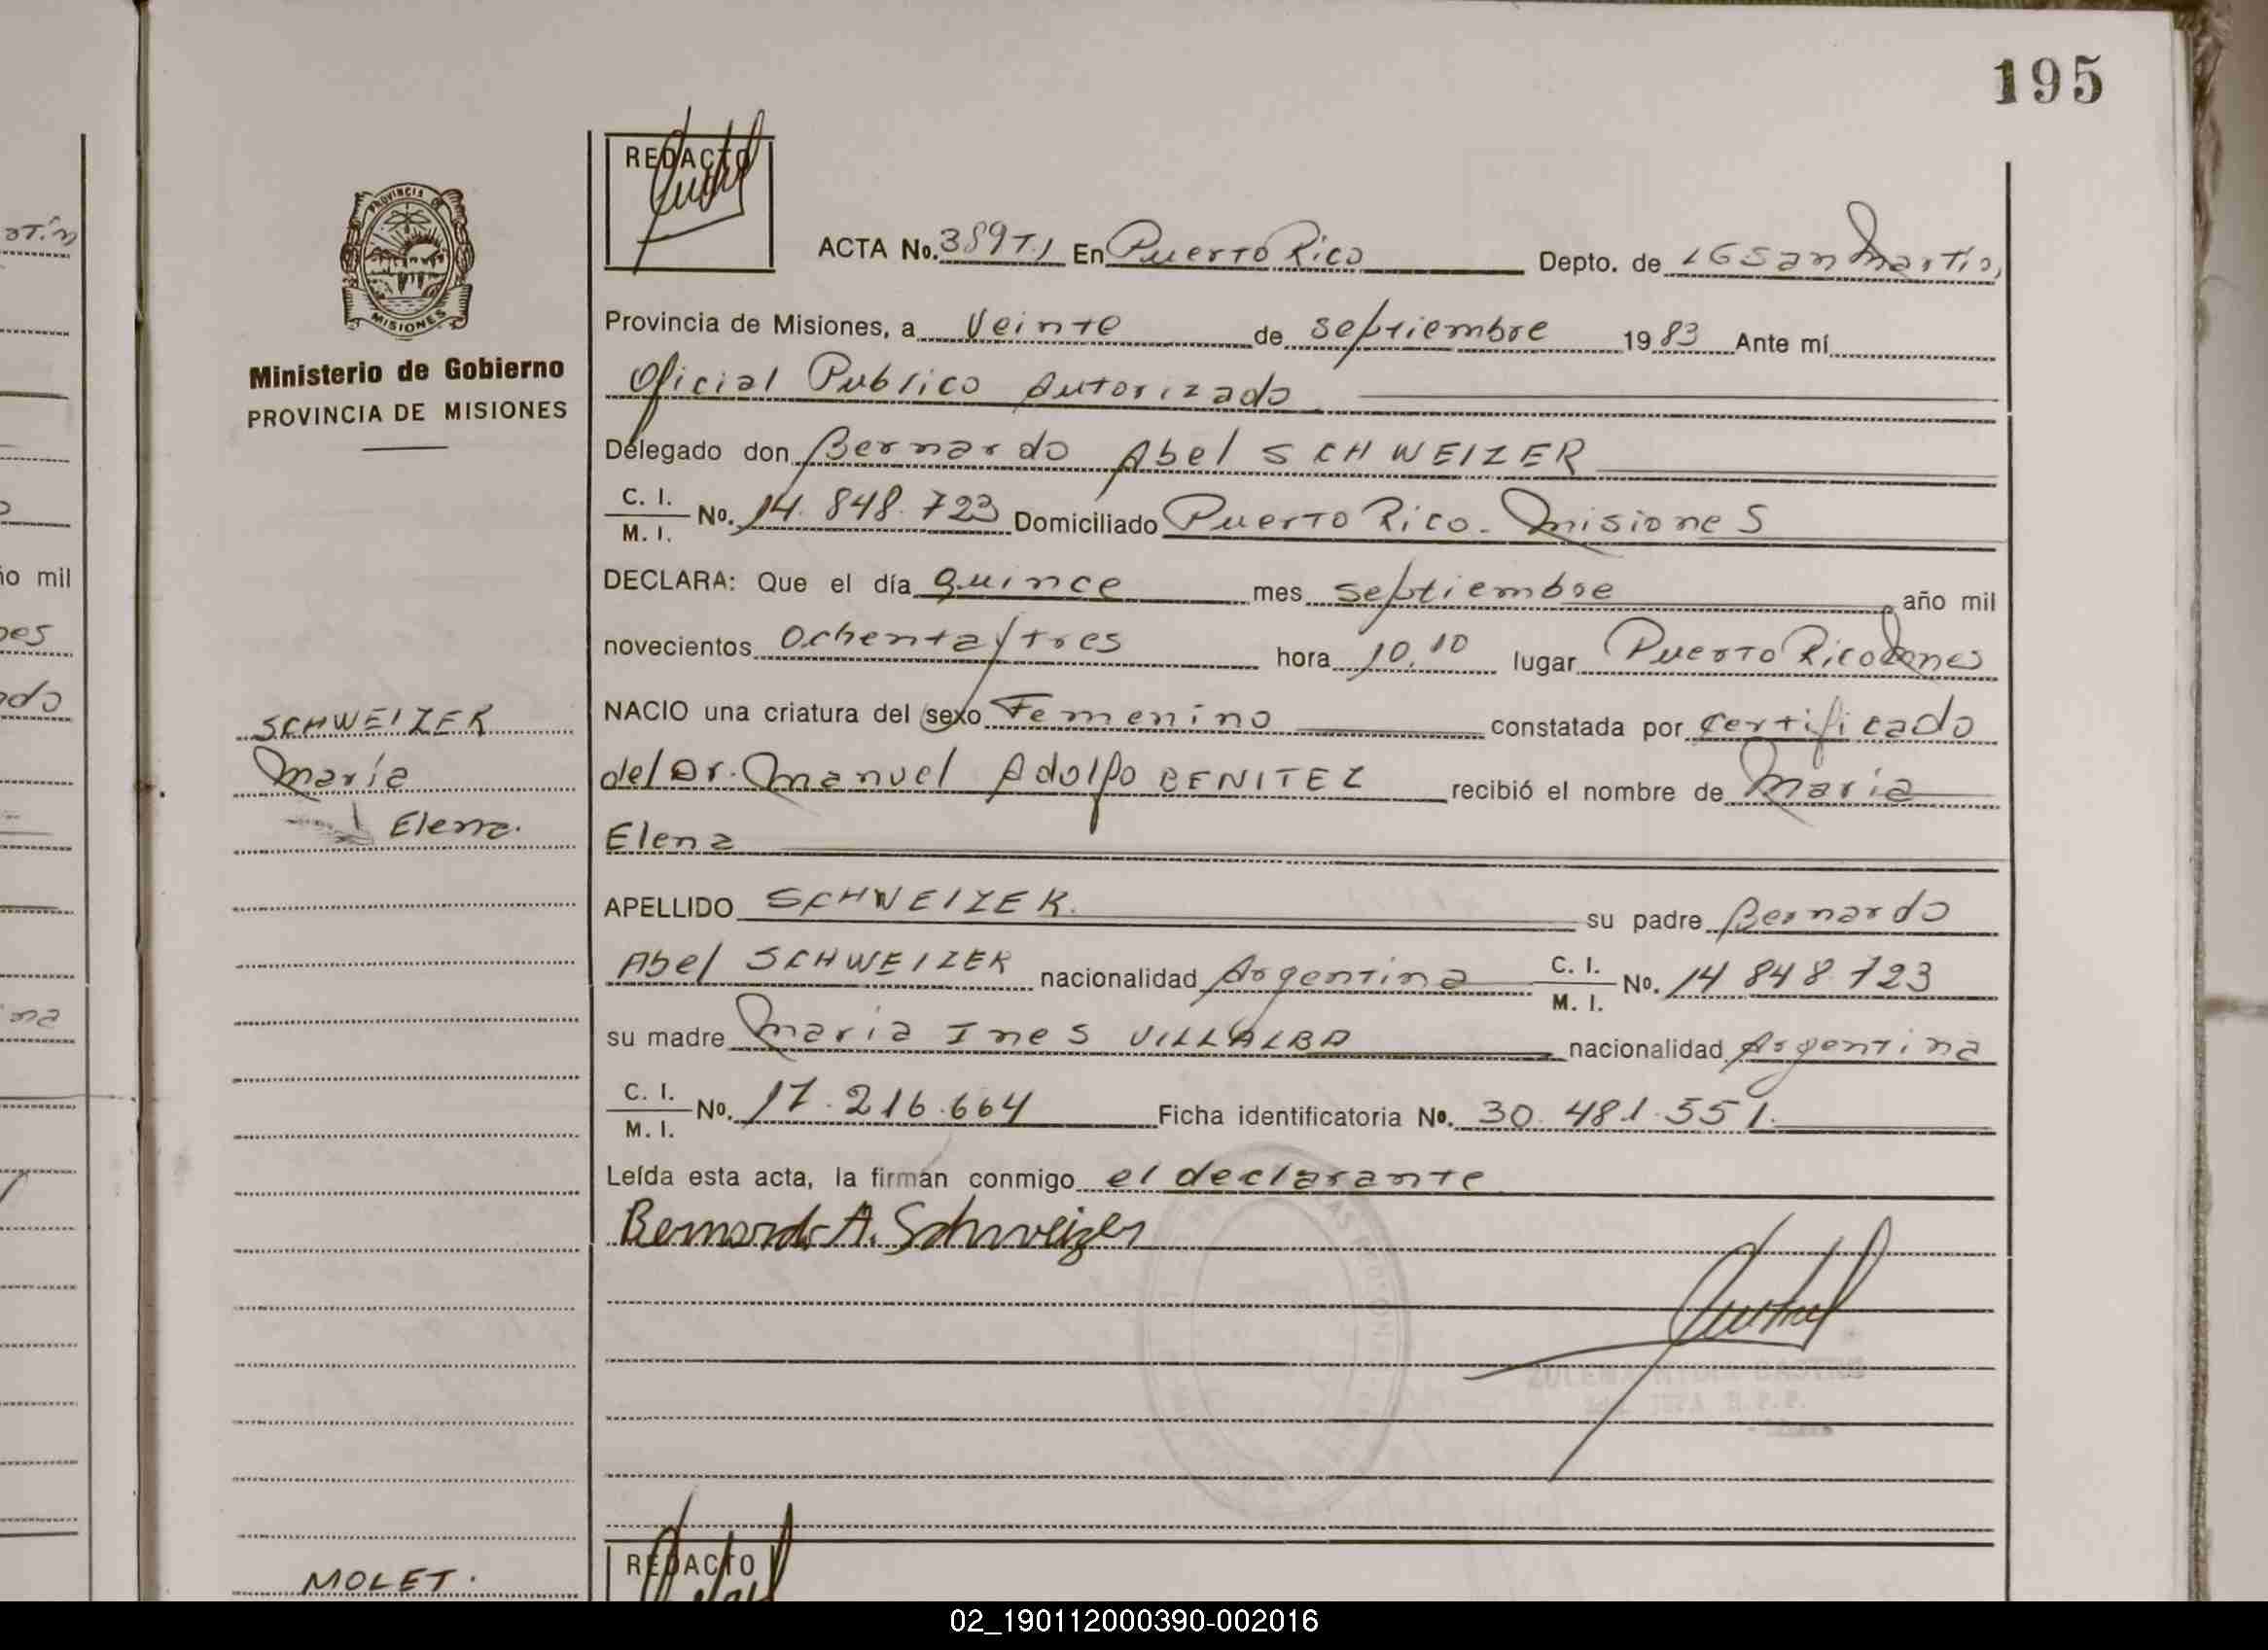 195
REDACTO
ACTA No. 389 T.I En Puerto Rico Depto. de LGSanMartín,
Provincia de Misiones, a Veinte de septiembre 1983 Ante mí
Oficial Publico Autorizado
Delegado don Bernardo Abel SCHWEIZER
C. I.
M. I. No. 14.848.723 Domiciliado Puerto Rico-Misiones
DECLARA: Que el día quince mes septiembre año mil
novecientos ochenta y tres hora 10,10 lugar Puerto Rico
NACIO una criatura del sexo Femenino constatada por certificado
del Dr. Manuel Adolfo BENITEZ recibió el nombre de María
Elena
APELLIDO SCHWEIZER. su padre Bernardo
Abel SCHWEIZER nacionalidad Argentina C. I.
M. I. No. 14 848.723
su madre María Ines VILLALBA nacionalidad Argentina
C. I.
M. I. No. 17.216.664 Ficha identificatoria No. 30.481.551.
Leída esta acta, la firman conmigo el declarante
Bernardo A. Schweizer
PROVINCIA DE
MISIONES
Ministerio de Gobierno
PROVINCIA DE MISIONES
SCHWEIZER
María
Elena.
REDACTO
MOLET.
ño mil
02_190112000390-002016